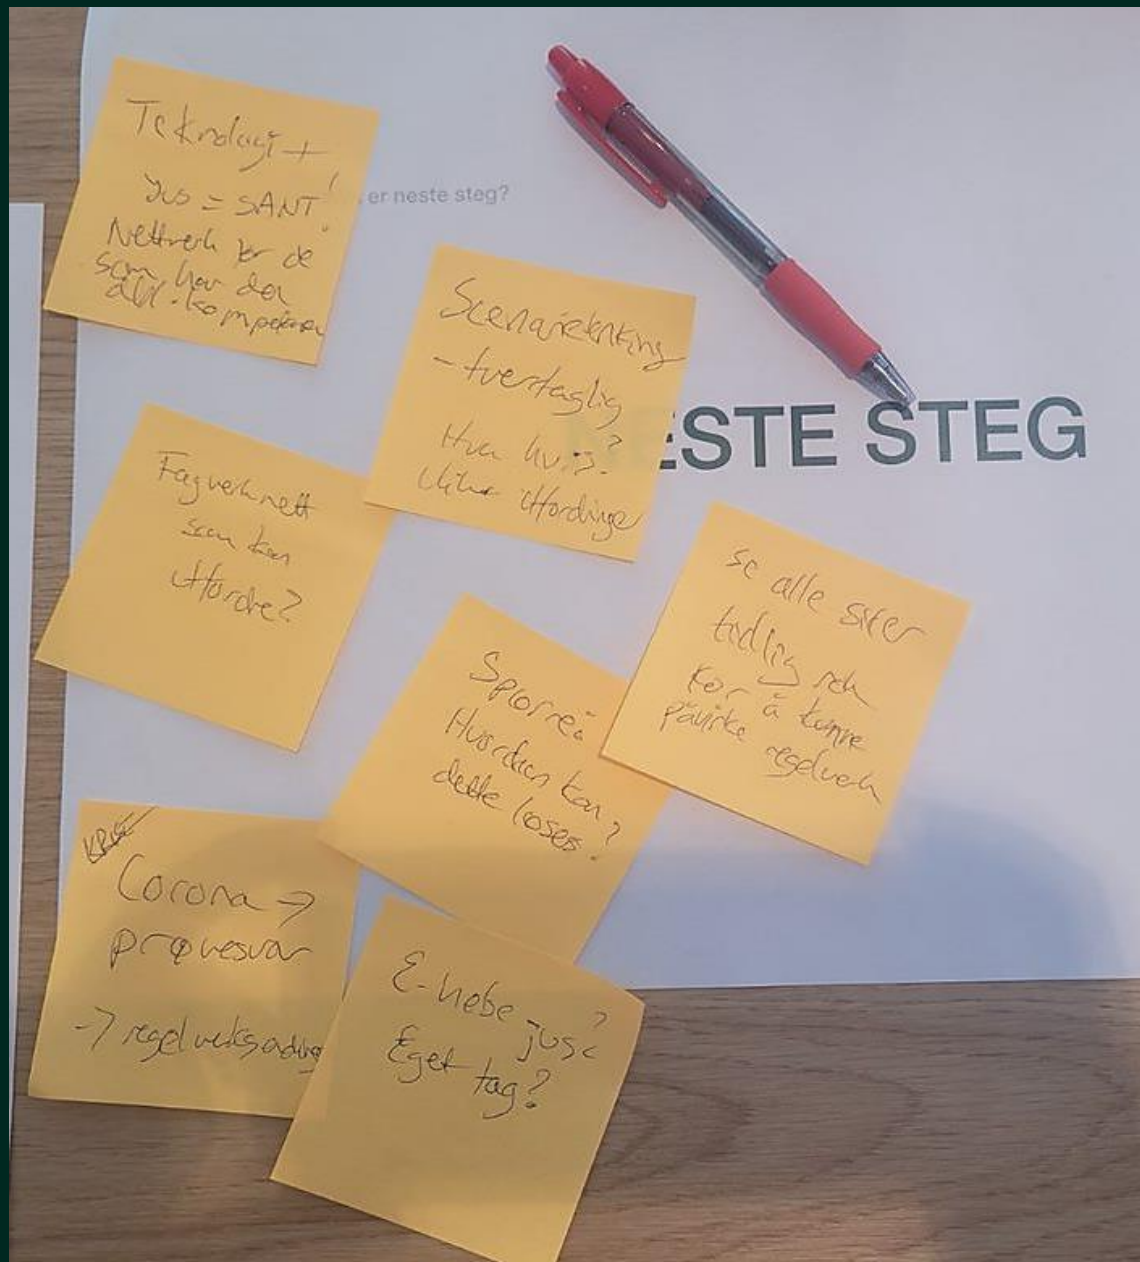 Teknologi +
jus = SANT!
Nettverk for de
som har den
er neste steg?
Scenarietenking
- tverfaglig
Hva hvis?
Ulike utfordinge
NESTE STEG
Fagverknett
som kan
utfordre?
se alle sider
tidlig nok
for å kunne
påvirke regelverk
Spørre:
Hvordan kan
dette løses?
KRISE
Corona →
prøvesvar
→ regelverksendring
E-helse jus?
Eget fag?